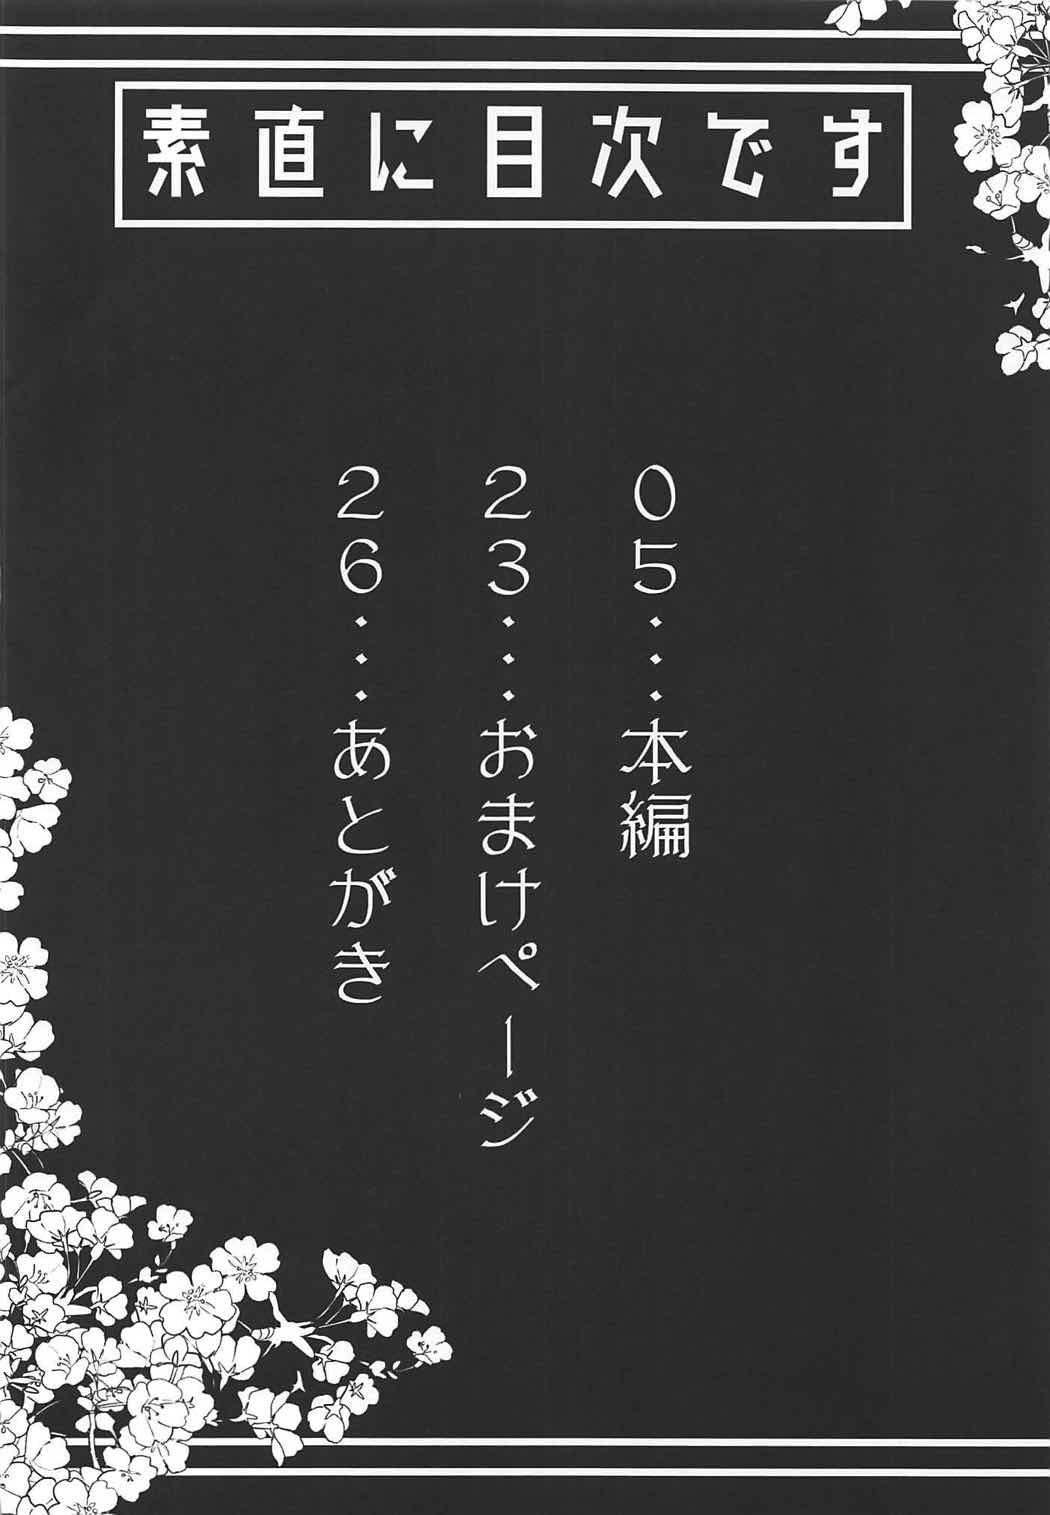 素直に目次です
05…本編
23…おまけページ
26…あとがき